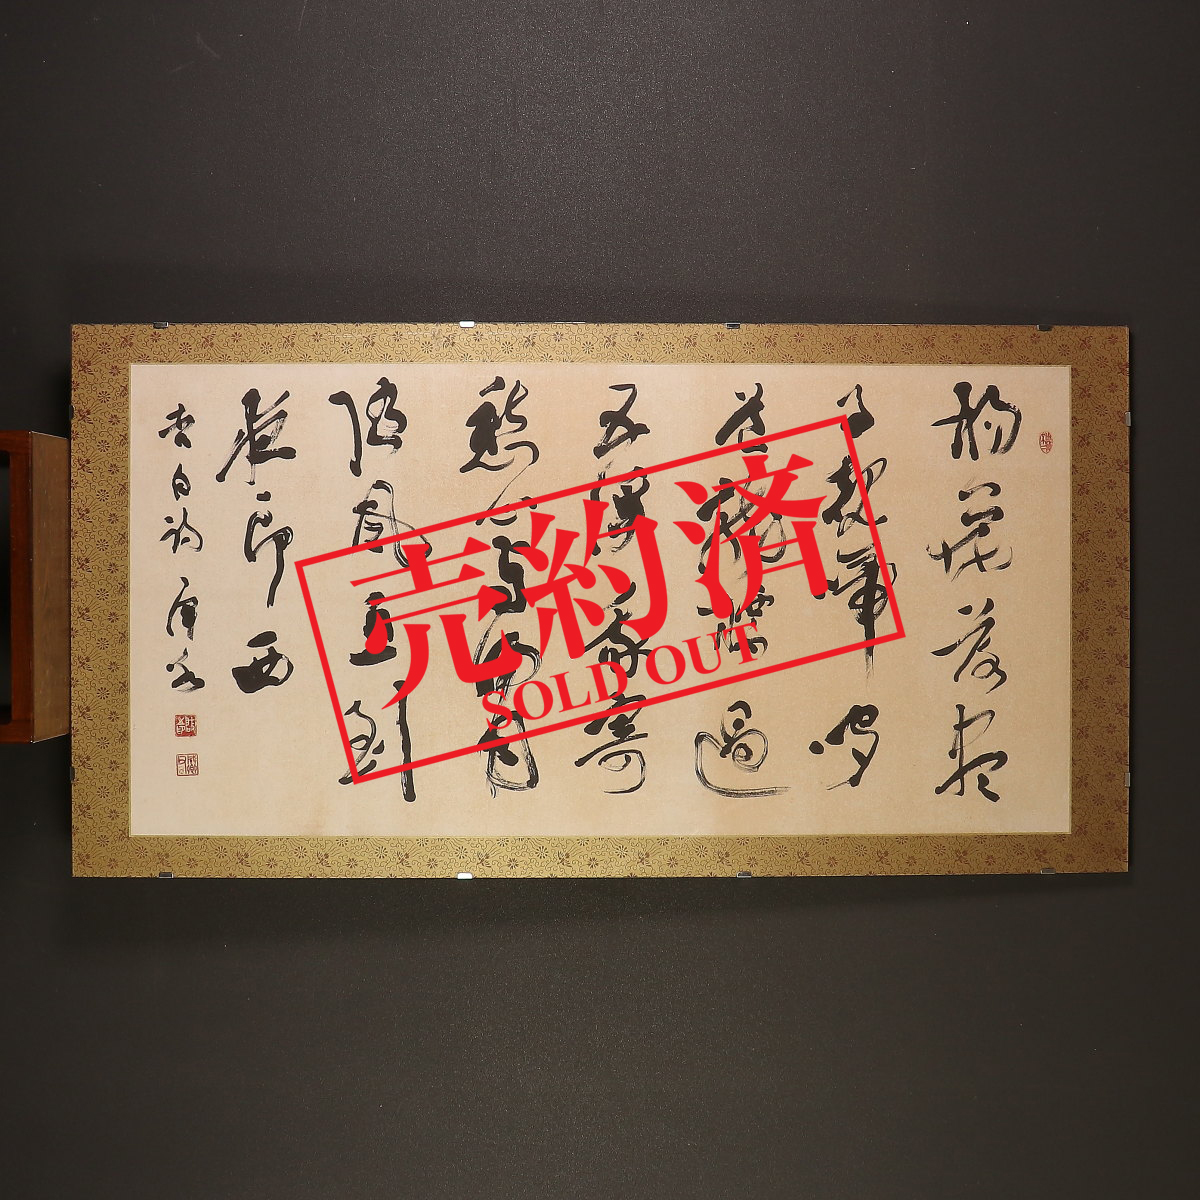 楊花落盡
子規啼聞
道龍標過
五溪我寄
愁心与明月
随風直到
夜郎西
李白詩
売約済
SOLD OUT